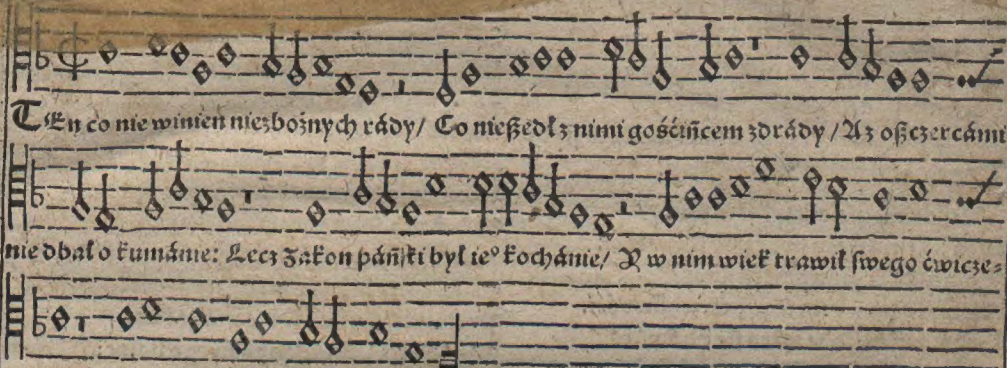 TEn co nie winien niezbożnych rády/ Co nieszedł z nimi gośćińcem zdrády/ Az oszczercámi
nie dbał o kumánie: Lecz Zakon páński był ieº kochánie/ Y w nim wiek trawił swego ćwicze⸗